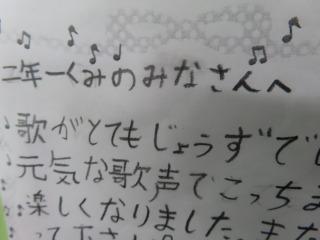 二年一くみのみなさんへ
歌がとてもじょうずで
元気な歌声でこっちま
楽しくなりました。また
って下さい